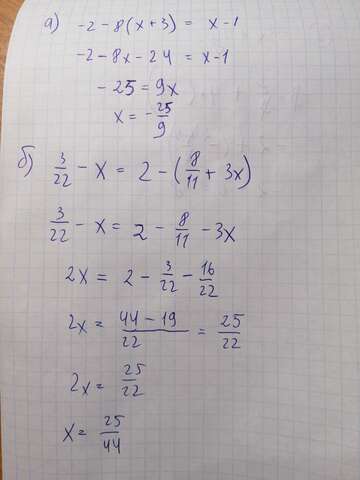 а) -2 - 8(x+3) = x-1
-2 - 8x - 24 = x-1
- 25 = 9x
x = - 25/9
б) 3/22 - x = 2 - (8/11 + 3x)
3/22 - x = 2 - 8/11 - 3x
2x = 2 - 3/22 - 16/22
2x = (44 - 19)/22 = 25/22
2x = 25/22
x = 25/44